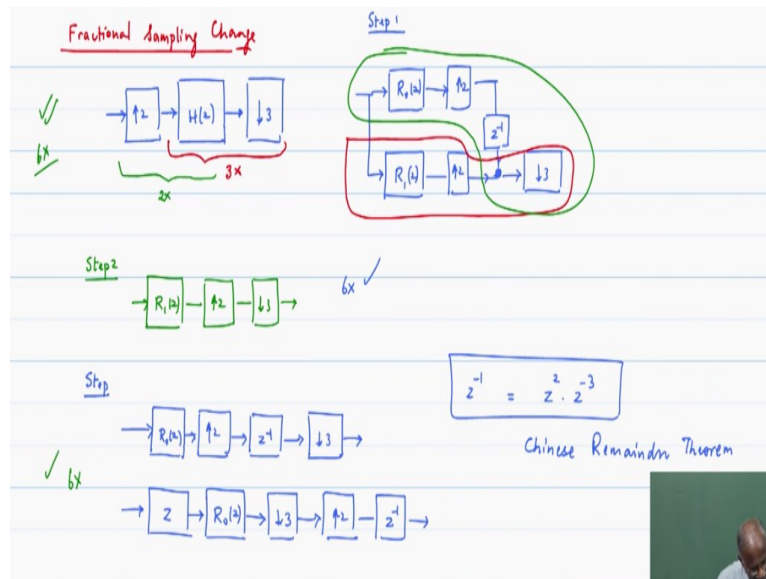 Fractional Sampling Change
↑2 H(z) ↓3
6x
2x
3x
Step 1
R₀(z) ↑2
z⁻¹
R₁(z) ↑2 ↓3
Step2
R₁(z) ↑2 ↓3
6x ✓
Step
R₀(z) ↑2 z⁻¹ ↓3
✓ 6x
z R₀(z) ↓3 ↑2 z⁻¹
z⁻¹ = z² · z⁻³
Chinese Remaindn Theorem